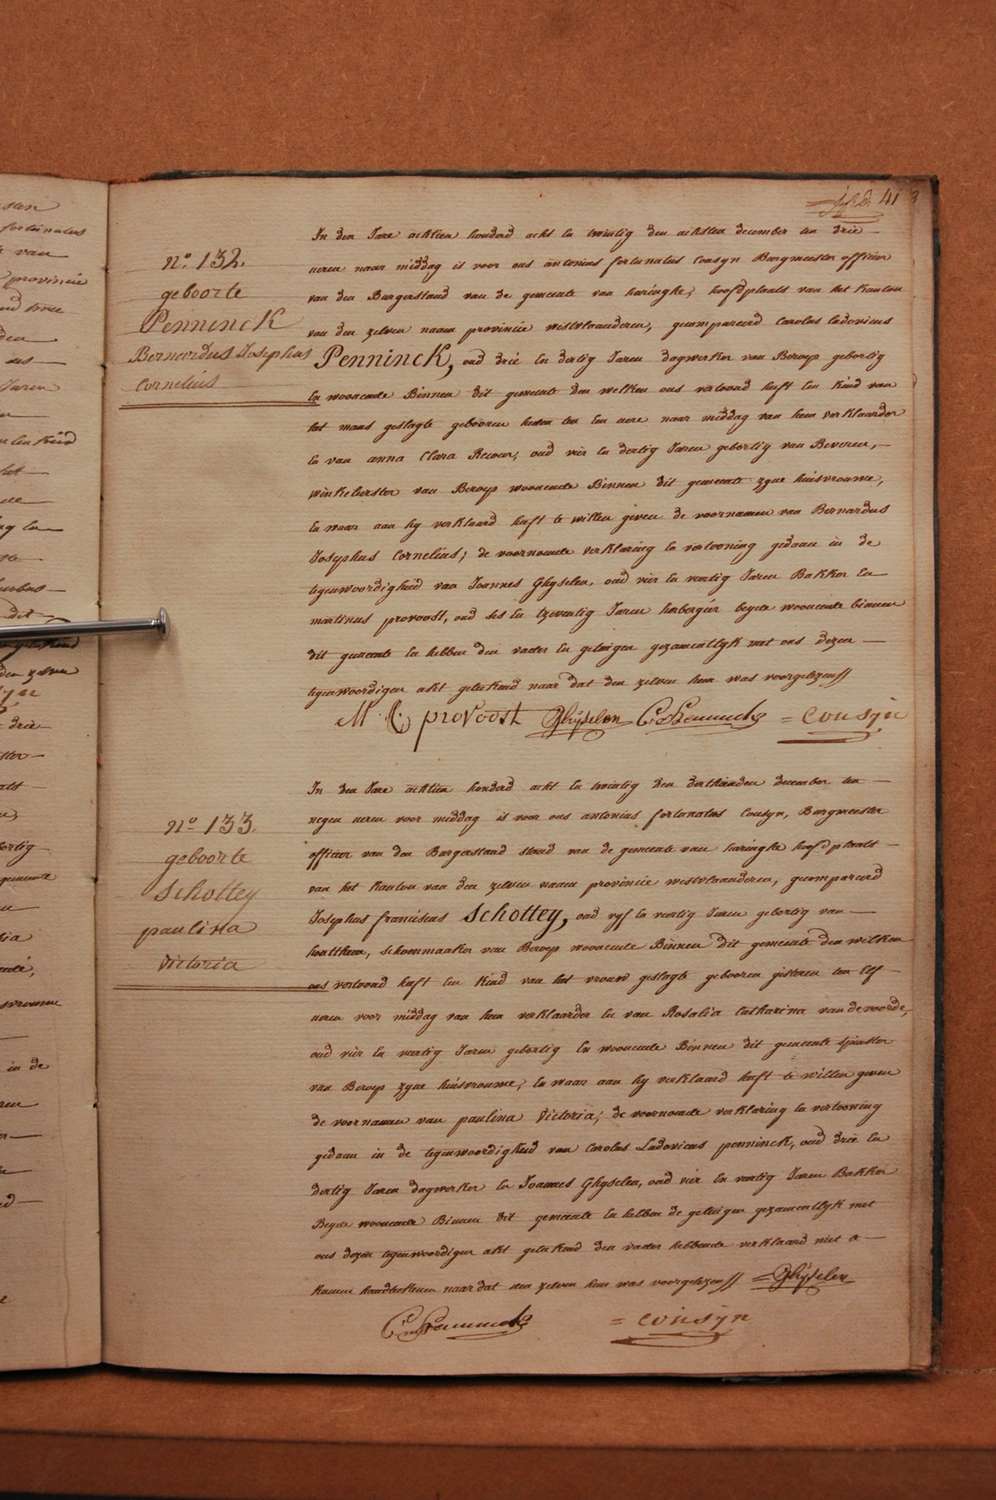 41
n.° 132.
geboorte
Penninck
Bernardus Josephus
Cornelius
In den Jare achtien honderd acht en twintig den achtsten december ten drie
uren naer middag is voor ons antonius fortunatus Cousyn Borgmeester officier
van den Burgerstand van de gemeente van haringhe, hoofdplaats van het kanton
van den zelven naem provincie westvlaanderen, gecompareerd Carolus Ludovicus
Penninck, oud drie en dertig Jaren dagwerker van Beroep geboortig
en woonende Binnen dit gemeente den welken ons vertoond heeft een kind van
het mans geslagte gebooren heden ten een uere naer middag van hem verklaarder
en van anna Clara oud vier en dertig Jaren geboortig van Beveren,
winkelierster van Beroep woonende Binnen dit gemeente zyne huisvrouwe,
en waar aan hy verklaard heeft te willen geven de voornamen van Bernardus
Josephus Cornelius; de voornoemde verklaring en vertooning gedaan in de
tegenwoordigheid van Joannes Ghyselen, oud vier en veertig Jaren Bakker en
martinus provoost, oud ses en tzeventig Jaren herbergier beyde woonende binnen
dit gemeente en hebben den vader en getuigen gezamentlyk met ons dezen
tegenwoordigen akt geteekend naer dat den zelven hem was voorgelezen //
M C provoost Ghyselen C: L Penninck = cousyn
n° 133.
geboorte
Schottey
paulina
victoria
In den Jare achtien honderd acht en twintig den derthienden december ten
negen uren voor middag is voor ons antonius fortunatus Cousyn, Burgmeester
officier van den Burgerstand stand van de gemeente van haringhe hoofdplaats
van het kanton van den zelven naem provincie westvlaanderen, gecompareerd
Josephus franciscus Schottey, oud vyf en veertig Jaren geboortig van
houthem, schoenmaaker van Beroep woonende Binnen dit gemeente den welken
ons vertoond heeft een kind van het vrouw geslagte gebooren gisteren ten elf
uren voor middag van hem verklaarder en van Rosalia Catharina vandevoorde,
oud vier en veertig Jaren geboortig en woonende Binnen dit gemeente spinster
van Beroep zyne huisvrouwe, en waar aan hy verklaard heeft te willen geven
de voornamen van paulina Victoria, de voornoemde verklaring en vertooning
gedaan in de tegenwoordigheid van Carolus Ludovicus penninck, oud drie en
dertig Jaren dagwerker en Joannes Ghyselen, oud vier en veertig Jaren Bakker
Beyde woonende Binnen dit gemeente en hebben de getuigen gezamentlyk met
ons dezen tegenwoordigen akt geteekend den vader hebbende verklaard niet te
kunnen handteekenen naer dat den zelven hem was voorgelezen // = Ghyselen
C: L Penninck = cousyn